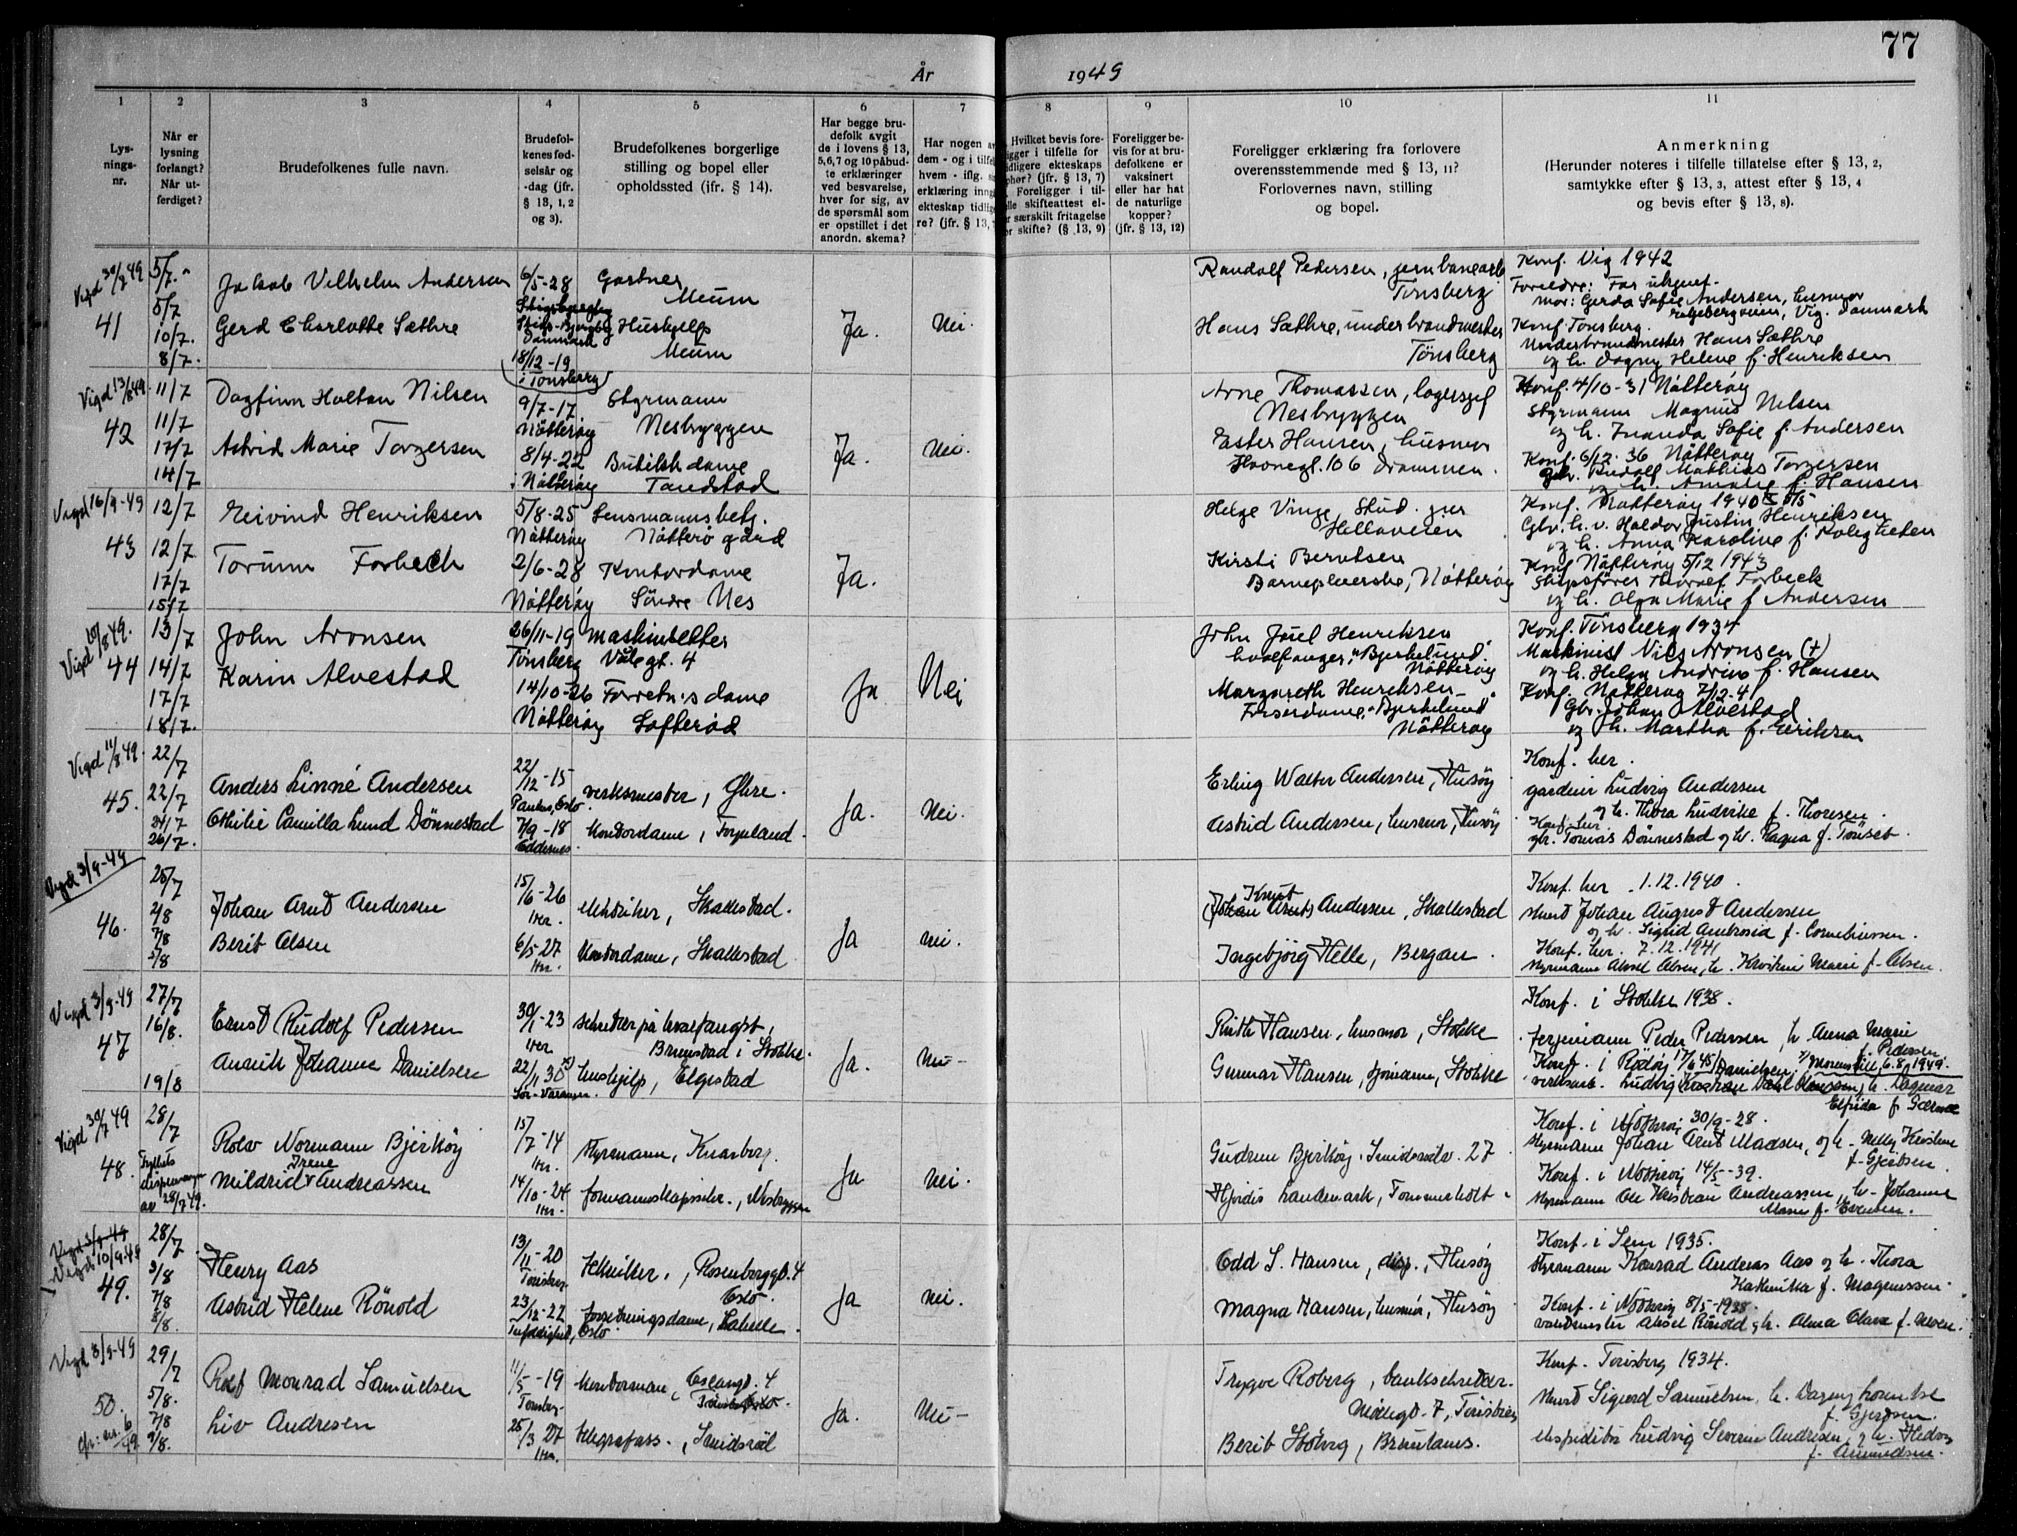 77
År 1949
1
2
3
4
5
6
7
8
9
10
11
Lys-
nings-
nr.
Når er
lysning
forlangt?
Når ut-
ferdiget?
Brudefolkenes fulle navn.
Brudefol-
kenes fød-
selsår og
-dag (jfr.
§ 13, 1, 2
og 3).
Brudefolkenes borgerlige
stilling og bopel eller
opholdssted (jfr. § 14).
Har begge bru-
defolk avgit
de i lovens § 13,
5,6,7 og 10 påbud-
te erklæringer
ved besvarelse,
hver for sig, av
de spørsmål som
er opstillet i det
anordn. skema?
Har nogen
dem - og i tilfelle
hvem - iflg.
erklæring inng
ekteskap tidlige
re? (jfr. § 13,
Hvilket bevis fore-
ligger i tilfelle for
tidligere ekteskaps
ophør? (jfr. § 13, 7)
Foreligger i til-
felle skifteattest el-
ler særskilt fritagelse
for skifte? (§ 13, 9)
Foreligger be-
vis for at bru-
defolkene er
vaksinert
eller har hat
de naturlige
kopper?
(jfr. § 13, 12)
Foreligger erklæring fra forlovere
overensstemmende med § 13, 11?
Forlovernes navn, stilling
og bopel.
Anmerkning
(Herunder noteres i tilfelle tillatelse efter § 13, 2,
samtykke efter § 13, 3, attest efter § 13, 4
og bevis efter § 13, 8).
Vigd 30/7 49
41
5/7
5/7
10/7
8/7
Jakob Vilhelm Andersen
Gerd Charlotte Sæthre
6/5-28
Stigs-Bjergby
Danmark
18/12-19
i Tønsberg
Gartner
Meum
Hushjelp
Meum
Ja.
Nei.
Randolf Pedersen, jernbanearb
Tønsberg
Hans Sæthre, underbrandmester
Tønsberg
Konf. Vig 1942
Foreldre: Far ukjent.
Mor: Gerda Sofie Andersen, husmor
Vig. Danmark
Konf. Tønsberg.
Underbrandmester Hans Sæthre
og h. Dagny Helene f. Henriksen
Vigd 13/8 49
42
11/7
11/7
17/7
14/7
Dagfinn Holtan Nilsen
Astrid Marie Torgersen
9/7-17
Nøtterøy
8/4-22
i Nøtterøy
Styrmann
Nesbryggen
Butikk dame
Tandstad
Ja.
Nei.
Arne Thomassen, lagersjef
Nesbryggen
Ester Hansen, husmor
Havnegt. 106 Drammen.
Konf. 4/10-31 Nøtterøy
Styrmann Magnus Nilsen
og h. Inanda Sofie f. Andersen
Konf. 6/12-36 Nøtterøy
Gbr. Rudolf Mathias Torgersen
og h. Amalie f. Hansen
Vigd 16/9-49
43
12/7
12/7
17/7
15/7
Eivind Henriksen
Torunn Forbech
5/8-25
Nøtterøy
2/6-28
Nøtterøy
Lensmannsbetj.
Nøtterø gård
Kontordame
Søndre Nes
Ja.
Helge Vinge, Stud. jur
Hellaveien
Kirsti Berntsen
Barnepleierske, Nøtterøy
Konf. Nøtterøy 1940
Gbr. h. v. Haldor Justin Henriksen
og h. Anna Karoline f. Roligheten
Konf. Nøtterøy 5/12 1943
Skipsfører Thoralf Forbech
og h. Olga Marie f. Andersen
Vigd /8 49.
44
13/7
14/7
17/7
18/7.
John Aronsen
Karin Alvestad
26/11-19
Tønsberg
14/10-26
Nøtterøy
Maskinsetter
Välegt. 4
Forretn.s dame
Lofterød
Ja
Nei
John Juel Henriksen
hvalfanger, "Bjerkelund"
Nøtterøy
Margareth Henriksen
Frisørdame, "Bjerkelund"
Nøtterøy
Konf. Tønsberg 1934
Maskinist Nils Aronsen (+)
og h. Helga Andrine f. Hansen
Konf. Nøtterøy 7/12-41
Gbr. Johan Alvestad
og h. Martha f. Eriksen
Vigd 11/8 49.
45.
22/7
22/7
24/7
26/7.
Anders Linné Andersen
Othilie Camilla Lund Dønnestad
22/12-15
Paulus, Oslo
7/9-18
Eddernes
verksmester, Øhre.
Kontordame, Føynland.
Ja.
Nei.
Erling Walter Andersen, Husøy
Astrid Andersen, husmor, Husøy
Konf. her.
gardeier Ludvig Andersen
og h. Thora Ludvikke f. Thoresen.
Konf. her
gbr. Tomas Dønnestad og h. Ragna f. Tønset.
Vigd 3/9-49
46.
25/7
2/8
7/8
5/8
Johan Arnt Andersen
Berit Olsen
15/6-26
Her.
6/5-27
Her.
elektriker, Skallestad.
Kontordame, Skallestad
Ja
Nei.
Knut
(Johan Arnt) Andersen, Skallestad
Ingebjørg Helle, Bergan.
Konf. her 1.12.1940.
skurd Johan August Andersen
og h. Sigrid Ambrosia f. Corneliussen.
Konf. her. 7.12.1941
styrmann Aksel Olsen, h. Kristine Marie f. Olsen.
Vigd 3/9-49
47
27/7
16/8.
19/8
Ernst Rudolf Pedersen
Annik Johanne Danielsen
30/1-23
Her
22/11 30
Sør-Varanger.
sekretær på hvalfangst,
Brunstad i Stokke.
hushjelp, Elgestad
Ja.
Nei-
Ruth Hansen, husmor, Stokke
Gunnar Hansen, sjømann, Stokke
Konf. i Stokke 1938.
ferjemann Peder Pedersen, h. Anna Marie
f. Pedersen
Konf. i Rødøy 17/6 45
6.8.1949.
verksarb. Ludvig
Danielsen
h. Dagmar
Elfrida f.
Vigd 30/7 49
48.
28/7
Fylkets
dispensasjon
av 28/7 49.
Rolv Normann Bjerkøy
Irene
Mildrid Andreassen
15/7-14
Her.
14/10-24
Her.
styrmann, Knarberg.
formannskapssekr., Nesbryggen
Ja
Nei.
Gudrun Bjerkøy, Smidsrødv. 27
Hjørdis Landmark, Tommerholt.
Konf. i Nøtterøy 30/9-28.
styrmann Johan Arnt Madsen, og h. Nelly Kristine
f. Gjertsen.
Konf. i Nøtterøy 14/5-39.
styrmann Ole Kristian Andreassen, h. Johanne
Marie f. Evensen.
Vigd 3/9-49
Vigd 10/9-49
49.
28/7
3/8
7/8
8/8.
Henry Aas
Astrid Helene Rönold
13/11-20
Tønsberg
23/12-22
Oslo.
Tekniker, Rosenborggt. 4
Oslo.
forretningsdame, Labelle.
Ja
Nei.
Odd S. Hansen, disp., Husøy
Magna Hansen, husmor, Husøy
Konf. i Sem 1935.
styrmann Konrad Andreas Aas og h. Thora
Kathinka f. Magnussen.
Konf. i Nøtterøy 8/5-1938.
vaktmester Aksel Rönold, h. Alma Olava f.
Vigd 3/9-49
50.
cfr. nr. 6
49
29/7
5/8.
7/8
9/8.
Rolf Monrad Samuelsen
Liv Andresen
11/5-19
Tønsberg
25/3 27
Her.
Kontormann, 4
telegrafass., Smidsrød
Ja.
Nei-
Trygve Roberg, banksekretær.
Møllegt. 7, Tønsberg
Berit Stolvig, Bruntanes.
Konf. Tønsberg 1934.
Murer Sigurd Samuelsen, h. Dagny Lovise
f. Gjertsen.
ekspeditør Ludvig Severin Andresen, og h. Hedvig
f. Amundsen.